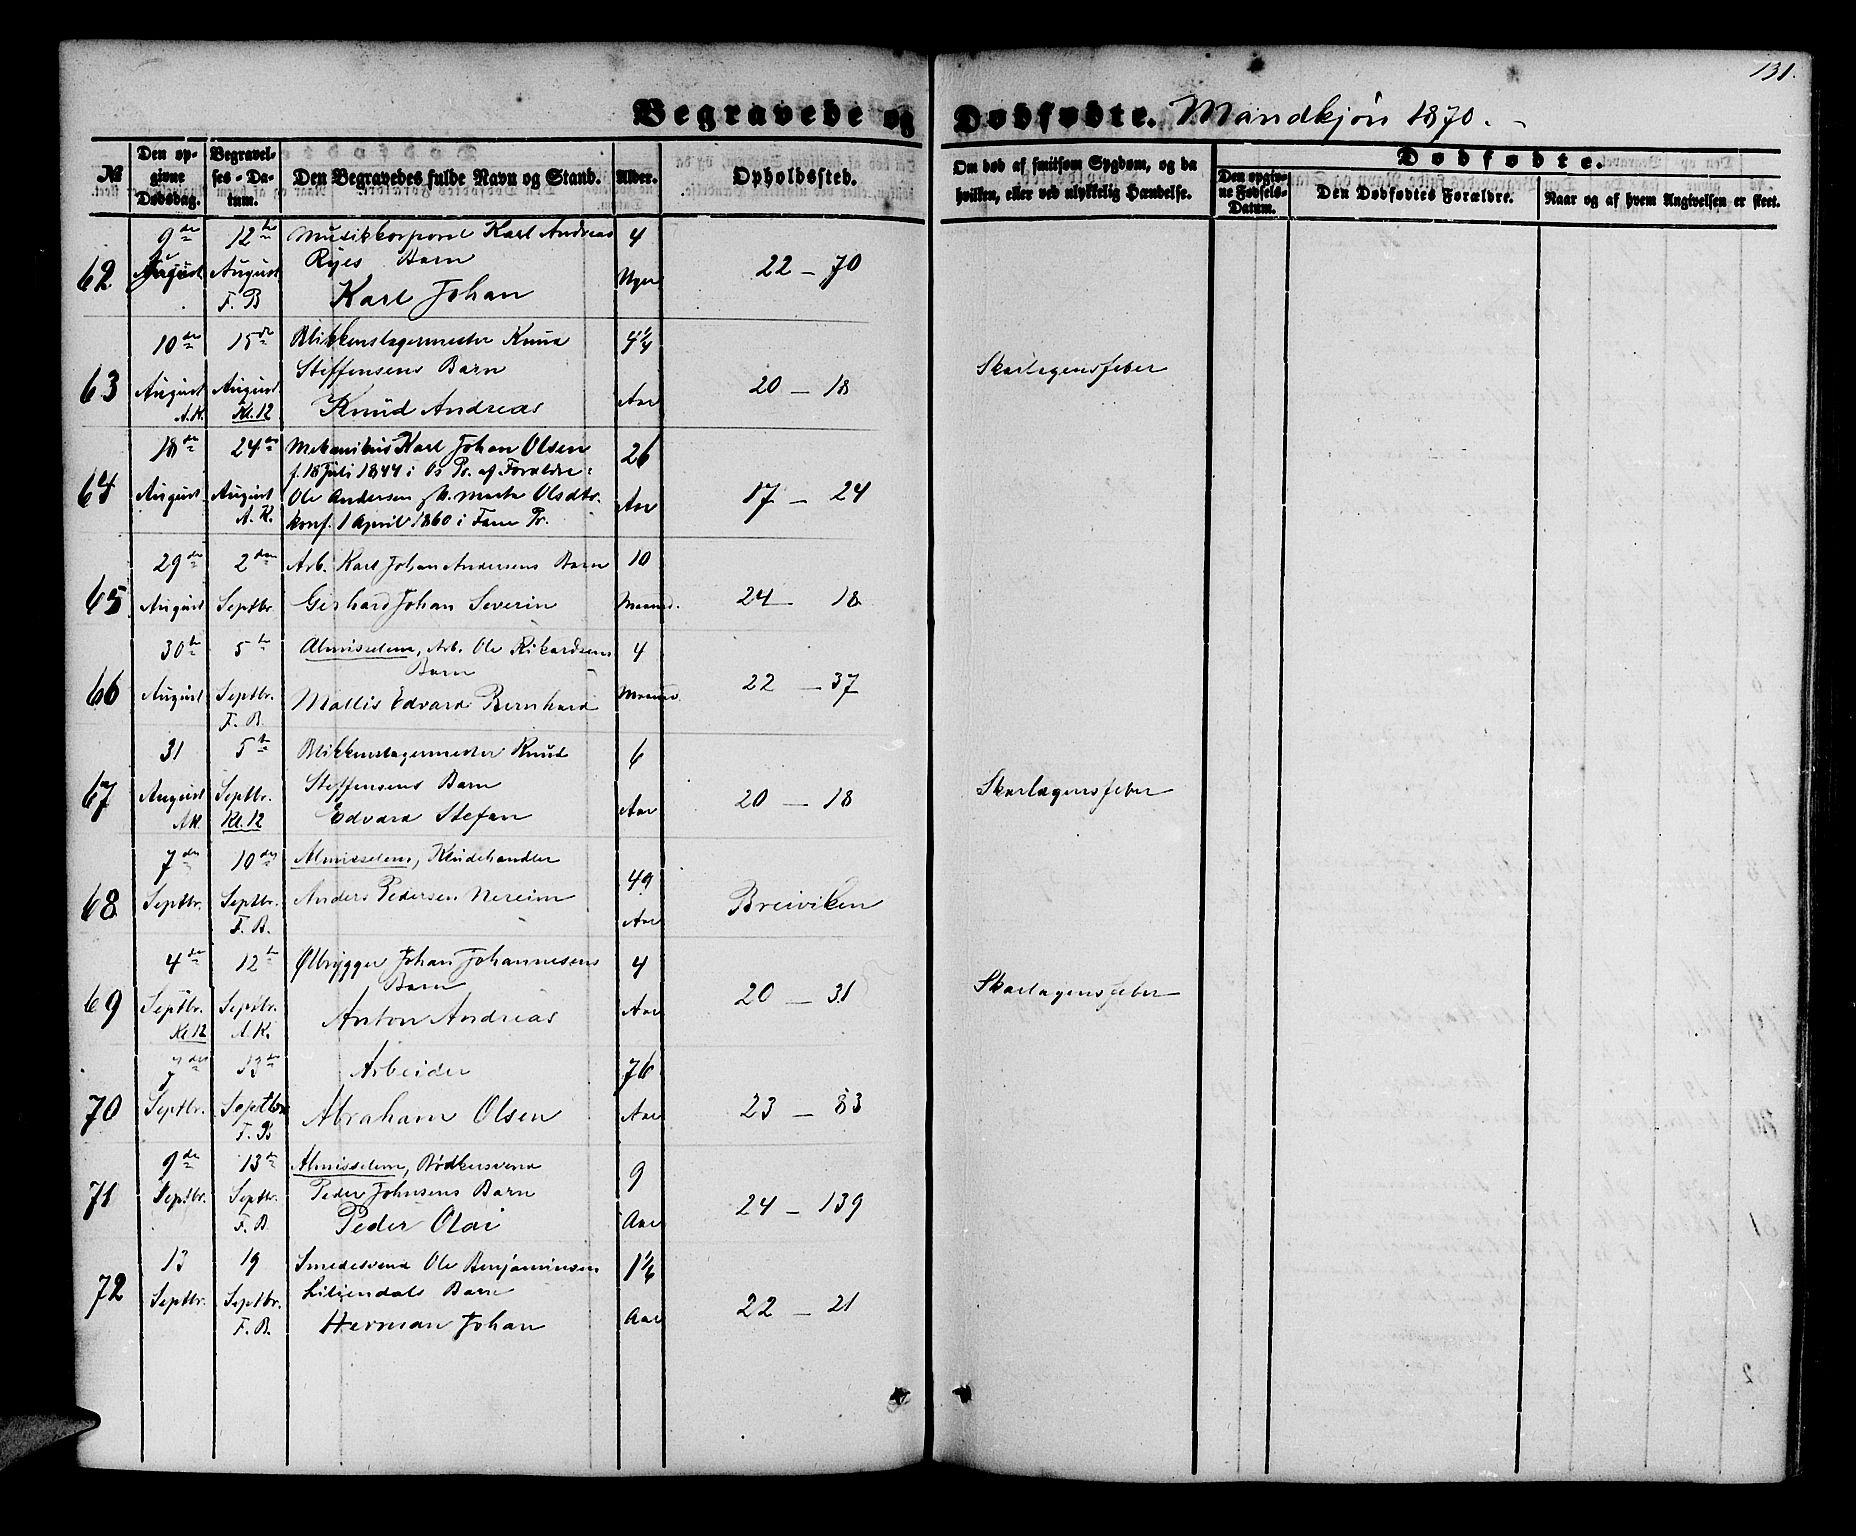 131.
Begravede og Dødfødte. Mandkjøn 1870.
№
Den opgivne Dødsdag.
Begravelses-Datum.
Den Begravedes fulde Navn og Stand.
Alder.
Opholdssted.
Om død af smitsom Sygdom, og da hvilken, eller ved ulykkelig Hændelse.
Dødfødte.
Den opgivne Fødsels-Datum.
Den Dødfødtes Forældre.
Naar og af hvem Angivelsen er skeet.
62 9de August 12te August F. B Musikkorporal Karl Andreas 4 Uger 22 – 70
Ryes Barn
Karl Johan
63 10de August A.K. 15de August Kl. 12 Blikkenslagermester Knud 4¼ Aar 20 – 18 Skarlagensfeber
Steffensens Barn
Knud Andreas
64 18de August 24de August A. K. Mekanikus Karl Johan Olsen 26 Aar 17 – 24
f. 18 Juli 1844 i Os Pr. af Forældre:
Ole Andersen & Marta Olsdtr.
konf. 1 April 1860 i Fane Pr.
65 29de August 2den Septbr. Arb. Karl Johan Andersens Barn 10 Maaned. 24 – 18
Gerhard Johan Severin
66 30te August 5te Septbr. F. B. Almisselem, Arb. Ole Rikardsens 4 Maaned. 22 – 37
Barn
Mallis Edvard Bernhard
67 31 August AK. 5te Septbr. Kl. 12 Blikkenslagermester Knud 6 Aar 20 – 18 Skarlagensfeber
Steffensens Barn
Edvard Stefan
68 7de Septbr. 10de Septbr. F. B. Almisselem, Kludehandler 49 Aar Breiviken
Anders Pedersen Nereim
69 4de Septbr. Kl 12 12te Septbr. A. K. Ølbrygger Johan Johannesens 4 Aar 20 – 31 Skarlagensfeber
Barn
Anton Andreas
70 7de Septbr. 13de Septbr. F. B Arbeider 76 Aar 23 – 83
Abraham Olsen
71 9de Septbr. 13de Septbr. F. B. Almisselem, Bødkersvend 9 Aar 24 – 139
Peder Johnsens Barn
Peder Olai
72 13 Septbr. 19 Septbr. F. B. Smedesvend Ole Benjaminsen 1¼ Aar 22 – 21
Liliendals Barn
Herman Johan